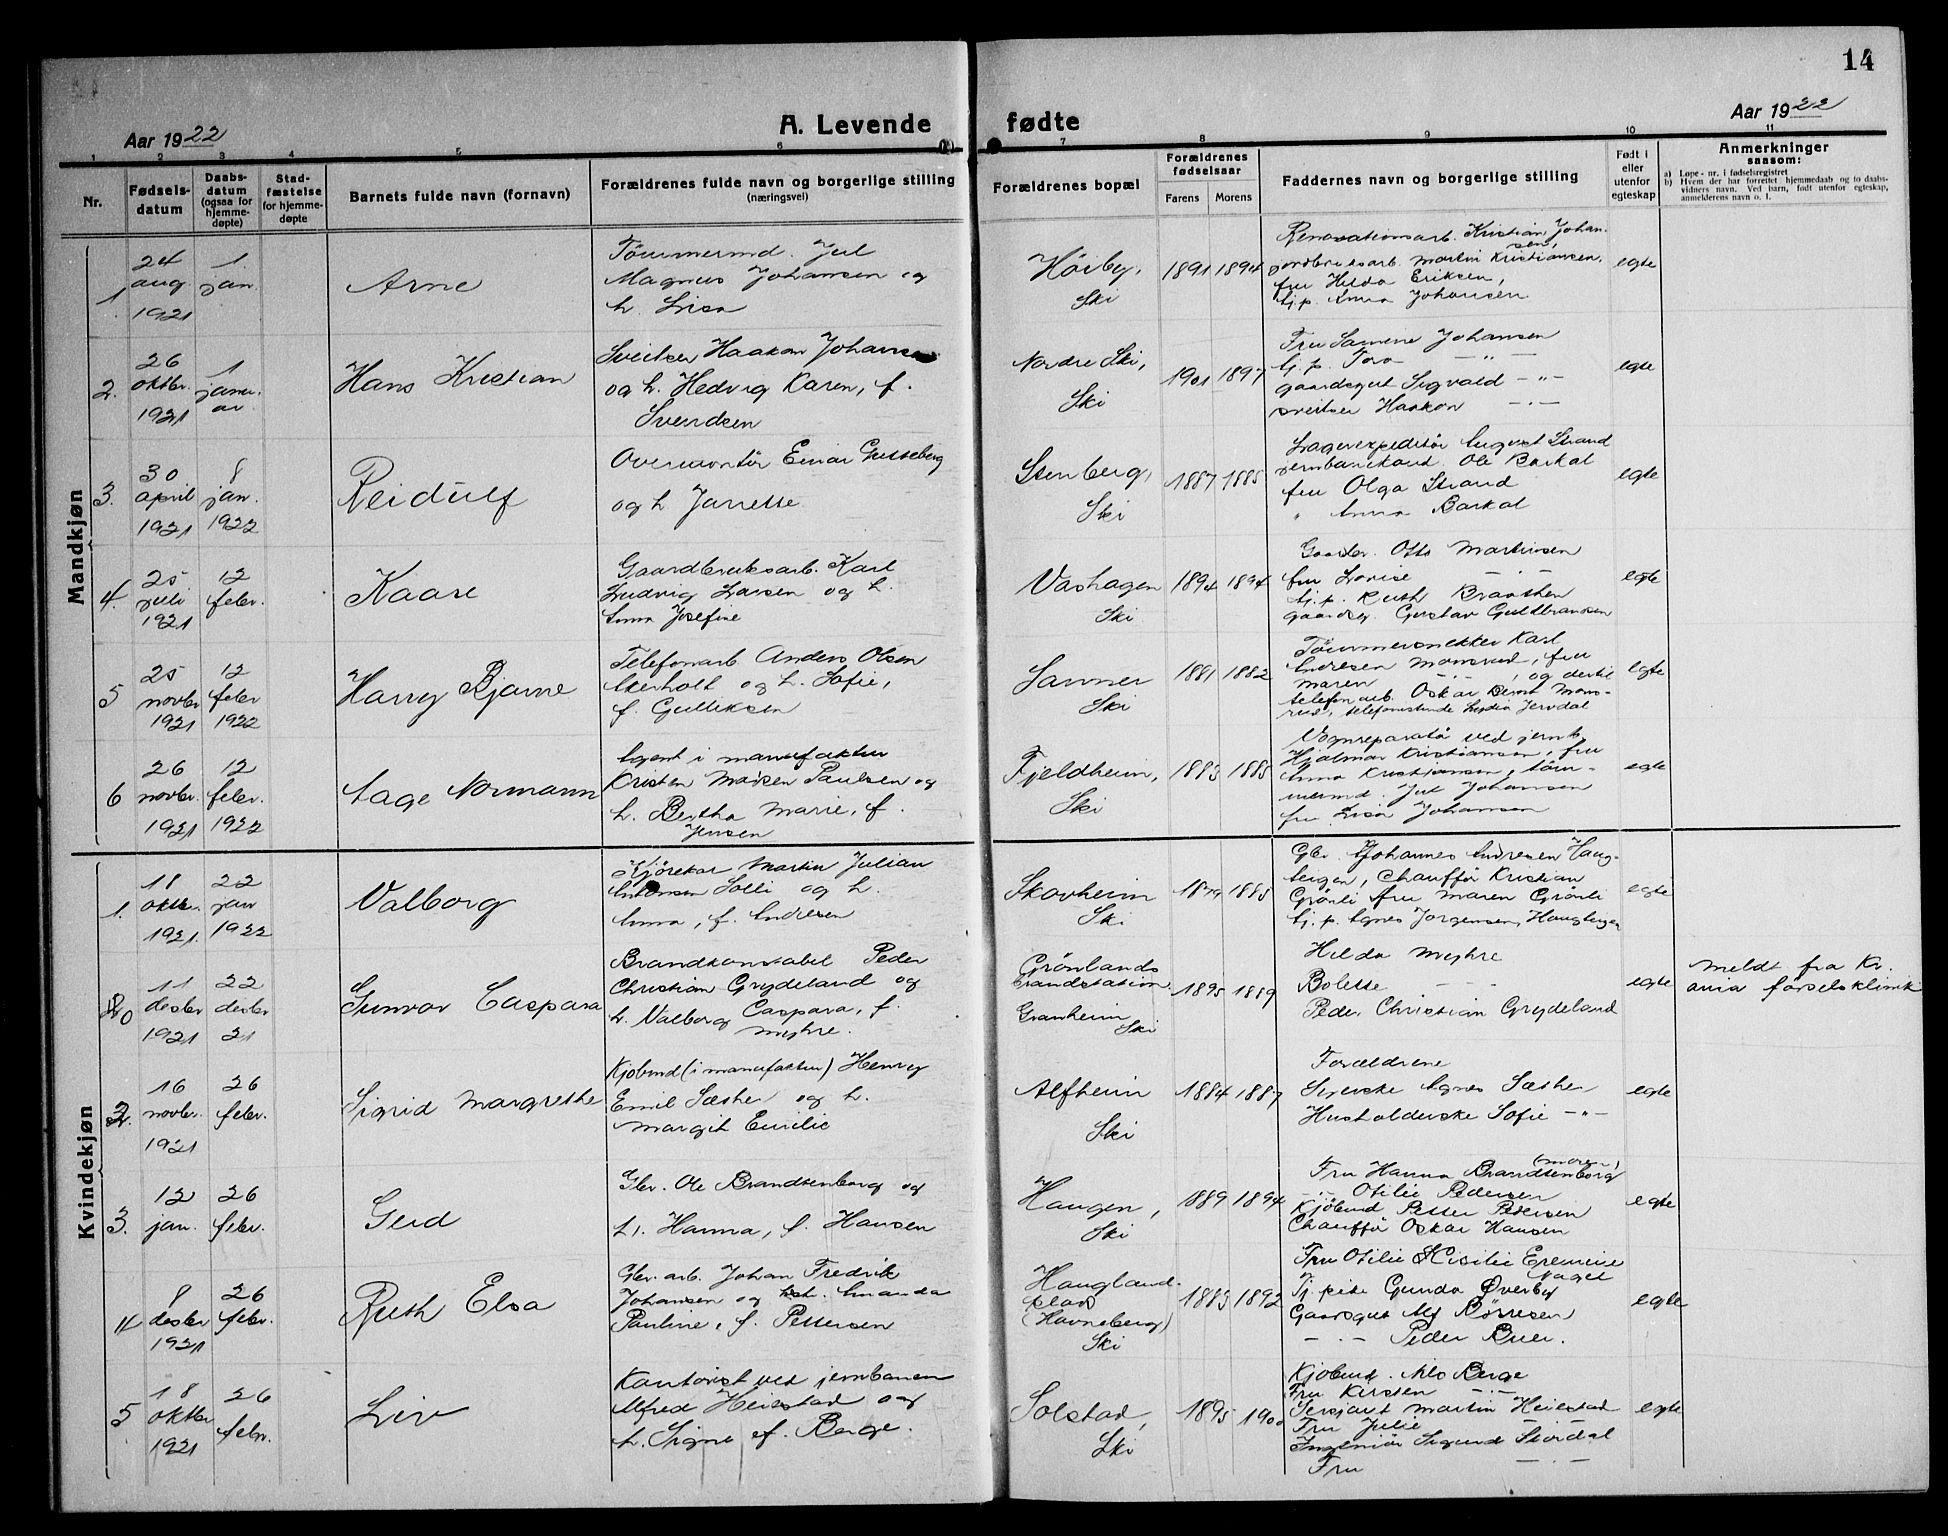 14
Aar 1922
A. Levende
fødte
Aar 1922
1 2 3 4 5 6 7 8 9 10 11
Nr.
Fødsels-
datum
Daabs-
datum
(ogsaa for
hjemme-
døpte)
Stad-
fæstelse
for hjemme-
døpte
Barnets fulde navn (fornavn)
Forældrenes fulde navn og borgerlige stilling
(næringsvei)
Forældrenes bopæl
Forældrenes
fødselsaar
Farens Morens
Faddernes navn og borgerlige stilling
Født i
eller
utenfor
egteskap
Anmerkninger
saasom:
a) Løpe-nr. i fødselsregistret
b) Hvem der har forrettet hjemmedaab og to daabs-
vidners navn. Ved barn, født utenfor egteskap,
anmelderens navn o. l.
Mandkjøn
1.
24
aug.
1921
1.
jan.
Arne
Tømmermd. Jul
Magnus Johansen og
h. Lisa
Høiby,
Ski
1891 1894
Renovationsarb. Kristian Johan-
sen,
jordbruksarb. Martin Kristiansen,
fru Hilda Eriksen,
tj.p. Anna Johansen
egte
2.
26
oktbr.
1921
1
januar
Hans Kristian
Sveitser Haakon Johansen
og h. Hedvig Karen, f.
Svendsen
Nordre Ski,
Ski
1901 1897
Fru Samine Johansen
tj.p. Tora — " —
gaardsgut Sigvald — " —
sveitser Haakon — " —
egte
3.
30
april
1921
8
jan.
1922
Reidulf
Overmontør Einar
og h. Janette
Stenberg,
Ski
1887 1885
Lagerexpeditør August Strand
Ole Barkal
fru Olga Strand
" Anna Barkal
egte
4.
25
juli
1921
12
febr.
Kaare
Gaardbruksarb. Karl
Ludvig Larsen og h.
Anna Josefine
Vashagen
Ski
1894 1894
Otto Martinsen
fru Lovise — " —
tj.p. Ruth Braathen
Gustav Guldbransen
egte
5
25
novbr
1921
12
febr
1922
Harry Bjarne
Telefonarb. Anders Olsen
Akerholt og h. Sofie,
f. Gulliksen
Sanner
Ski
1881 1882
Tømmersnekker Karl
Andresen Monsrud, fru
Maren — " —, og dertil
telefonarb. Oskar Bernt Mons-
rud, telefonistinde Lydia
egte
6
26
novbr.
1921
12
febr.
1922
Aage Normann
Agent i manufaktur
Kristen Paulsen og
h. Bertha Marie, f.
Jensen
Fjeldheim,
Ski
1883 1885
Vognreparatør ved jernb.
Hjalmar Kristiansen, fru
Anna Kristiansen, tøm-
mermd. Jul Johansen
fru Lisa Johansen
egte
Kvindekjøn
1.
18
oktbr.
1921.
22
jan
1922
Valborg
Kjørekar Martin Julian
Antonsen Solli og h.
Anna, f. Andresen
Skovheim
Ski
1879 1885
Gbr. Johannes Andresen Haug-
tengen, Chauffør Kristian
Grönli fru Maren Grönli
tj.p. Agnes Jørgensen, Haugtengen
egte
11
desbr
1921
22
desbr
21
Gunvor Caspara
Brandkonstabel Peder
Christian Grydeland og
h. Valborg Caspara, f.
Myhre.
Grønlands
brandstation
Granheim
Ski
1895 1889
Hilda Myhre
Bolette — " —
Peder Christian Grydeland
egte
Meldt fra Kr.
ania fødselsklinik
2.
16
novbr.
1921
26
febr.
Sigrid Margrethe
Kjøbmd (i manufaktur) Henry
Emil Sæther og h.
Margit Emilie
Alfheim
Ski
1884 1887
Forældrene
Syerske Agnes Sæther
Husholderske Sofie — " —
egte
3.
12
jan.
26
febr.
Gerd
Gbr. Ole Brandtenborg og
h. Hanna, f. Hansen
Haugen,
Ski
1889 1894
Fru Hanna Brandtenborg (moren)
— " — Otilie Pedersen
Kjøbmd Petter Pedersen
Chauffør Oskar Hansen
egte
4
8
desbr
1921
26
febr.
Ruth Elsa
Gbr. arb. Johan Fredrik
Johansen og h. Amanda
Pauline, f. Pettersen
Haugland-
plads
(Havneberg)
Ski
1883 1892
Fru Otilie
Tj. pike Gunda Øverby
Gaardsgut Alf Børresen
— " — Peder Buer.
egte
5
18
oktbr
1921
26
febr.
Liv
Kontorist ved jernbanen
Alfred Heiestad og
h. Signe f. Berge.
Solstad,
Ski
1895 1900
Kjøbmd. Nils Berge
Fru Kirsten — " —
Sersjant Martin Heiestad
Fru Julie — " —
Ingeniør Sigurd Stordal
Fru — " —
egte